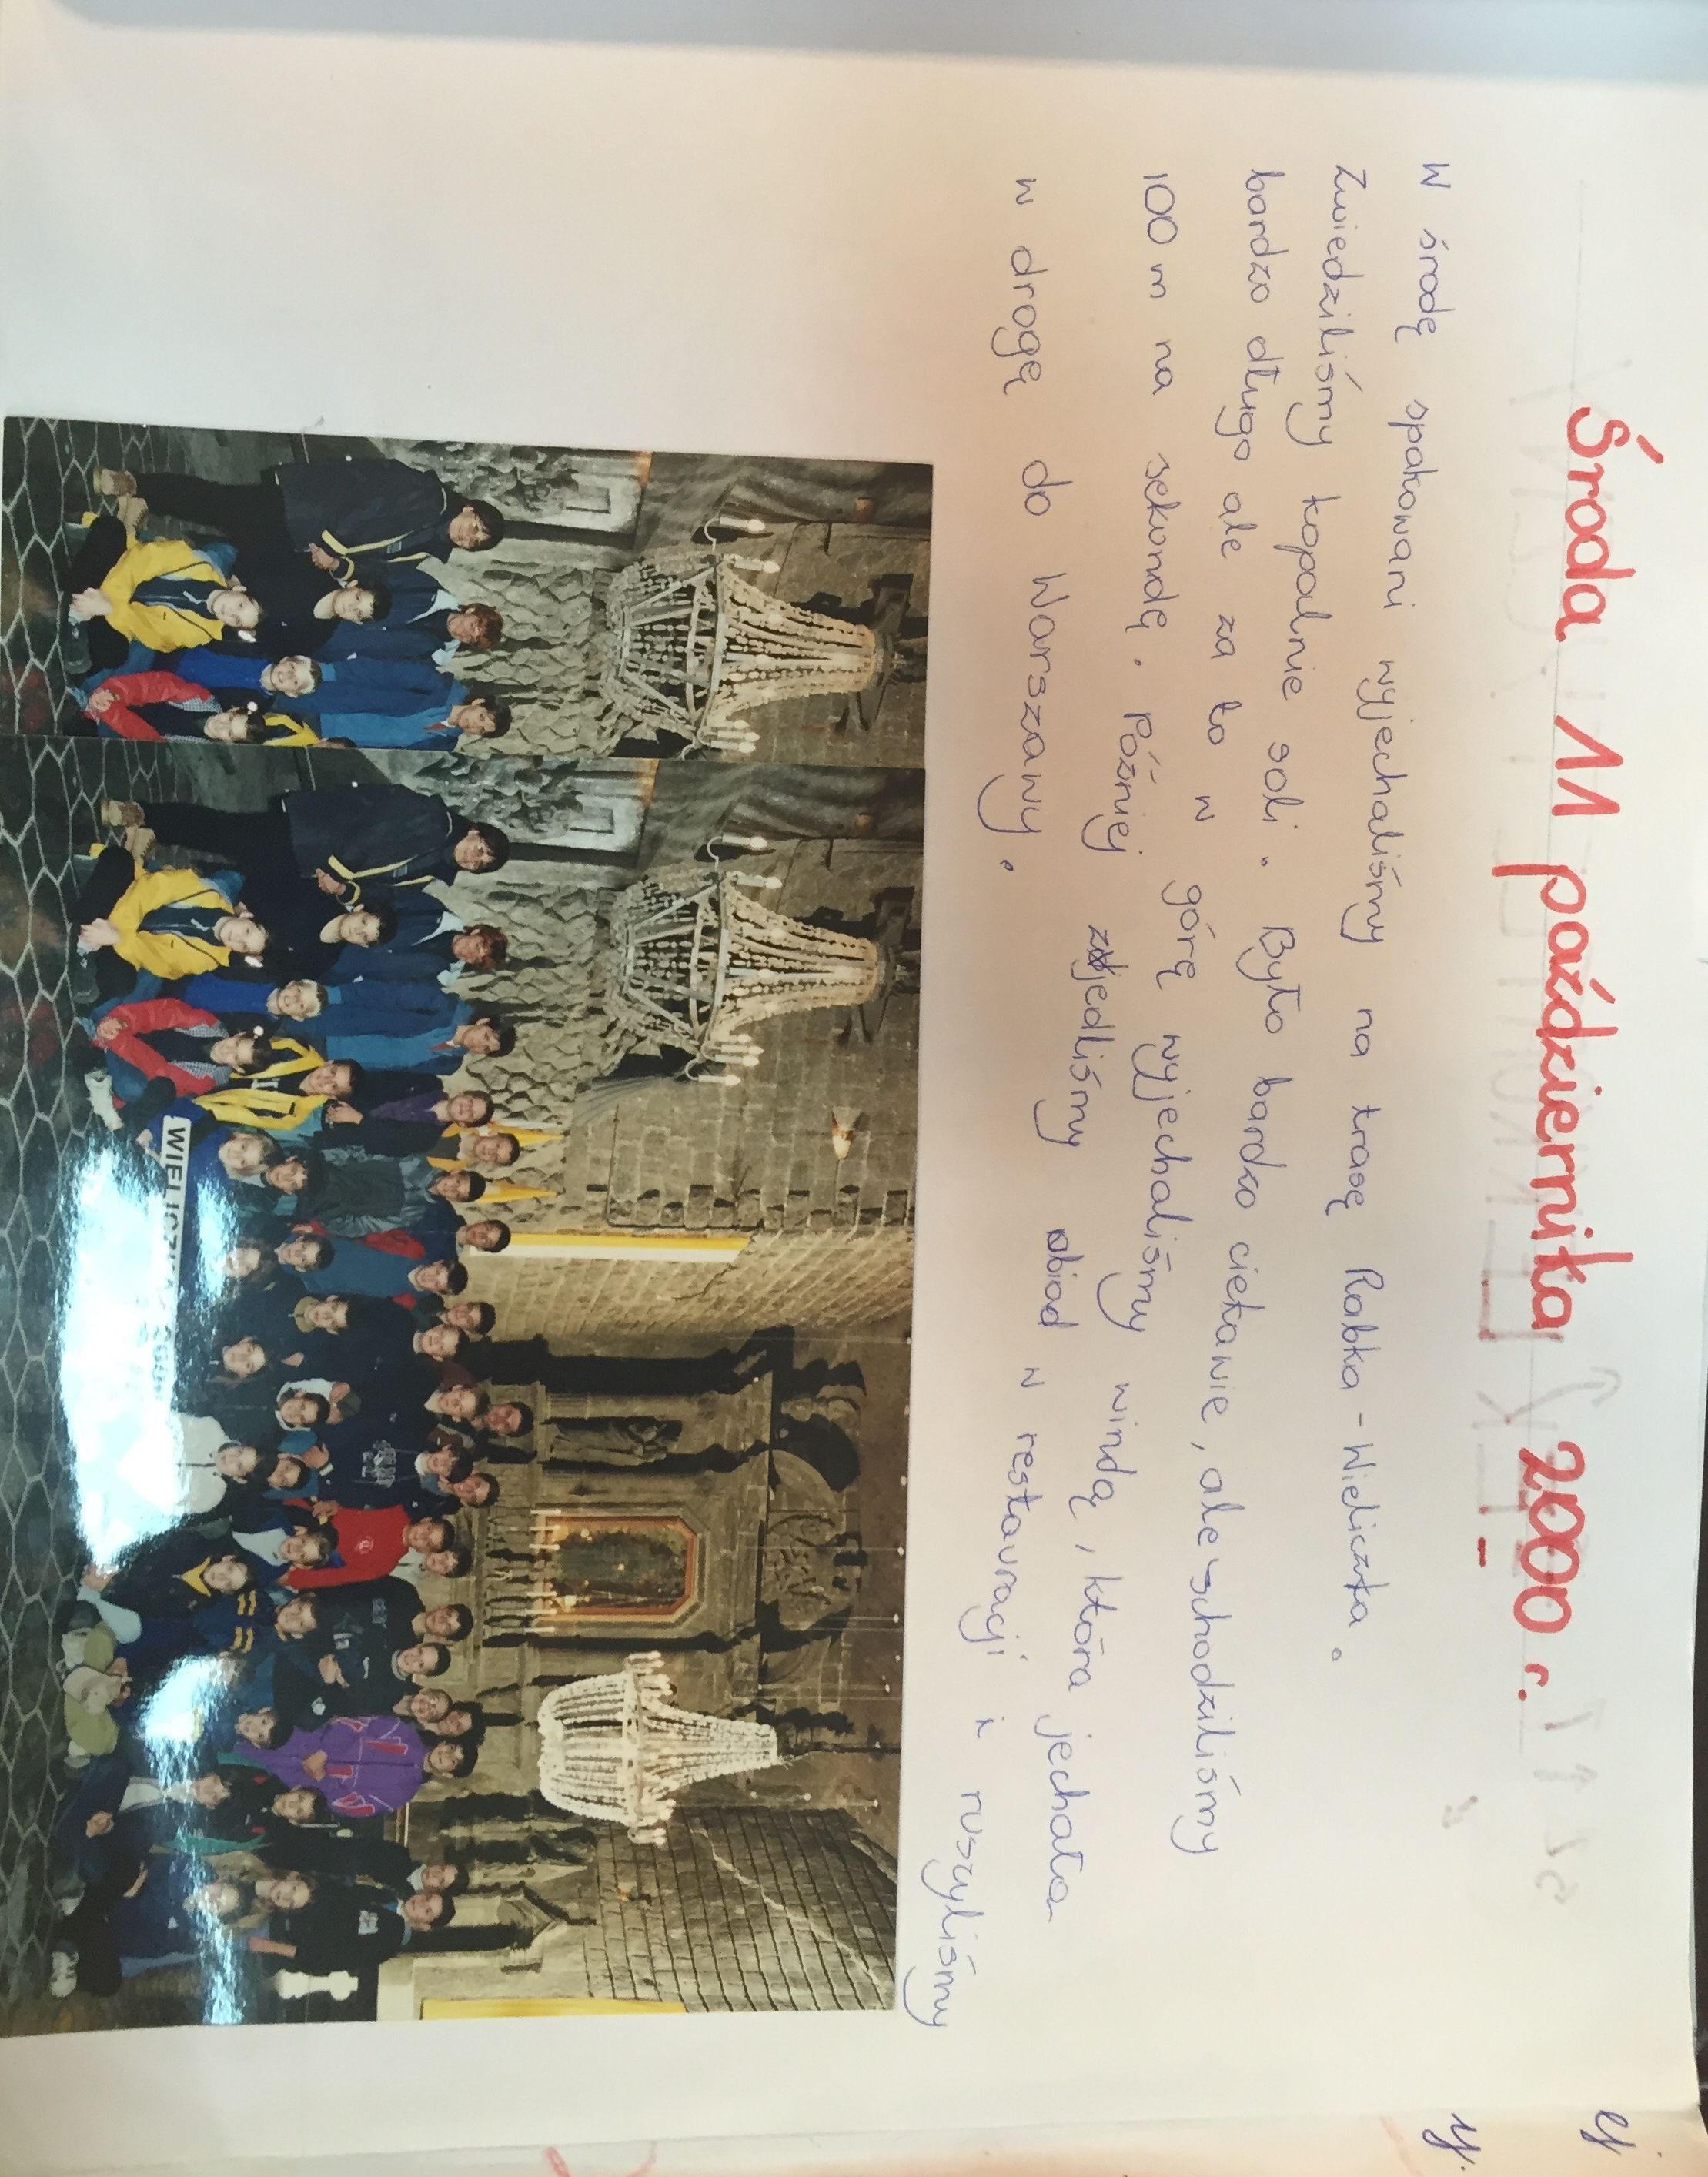 Środa 11 października 2000 r.
W środę spakowani wyjechaliśmy na trasę Rabka - Wieliczka.
Zwiedziliśmy kopalnie soli. Było bardzo ciekawie, ale schodziliśmy
bardzo długo ale za to w górę wyjechaliśmy windą, która jechała
100 m na sekundę. Później zjedliśmy obiad w restauracji i ruszyliśmy
w drogę do Warszawy.